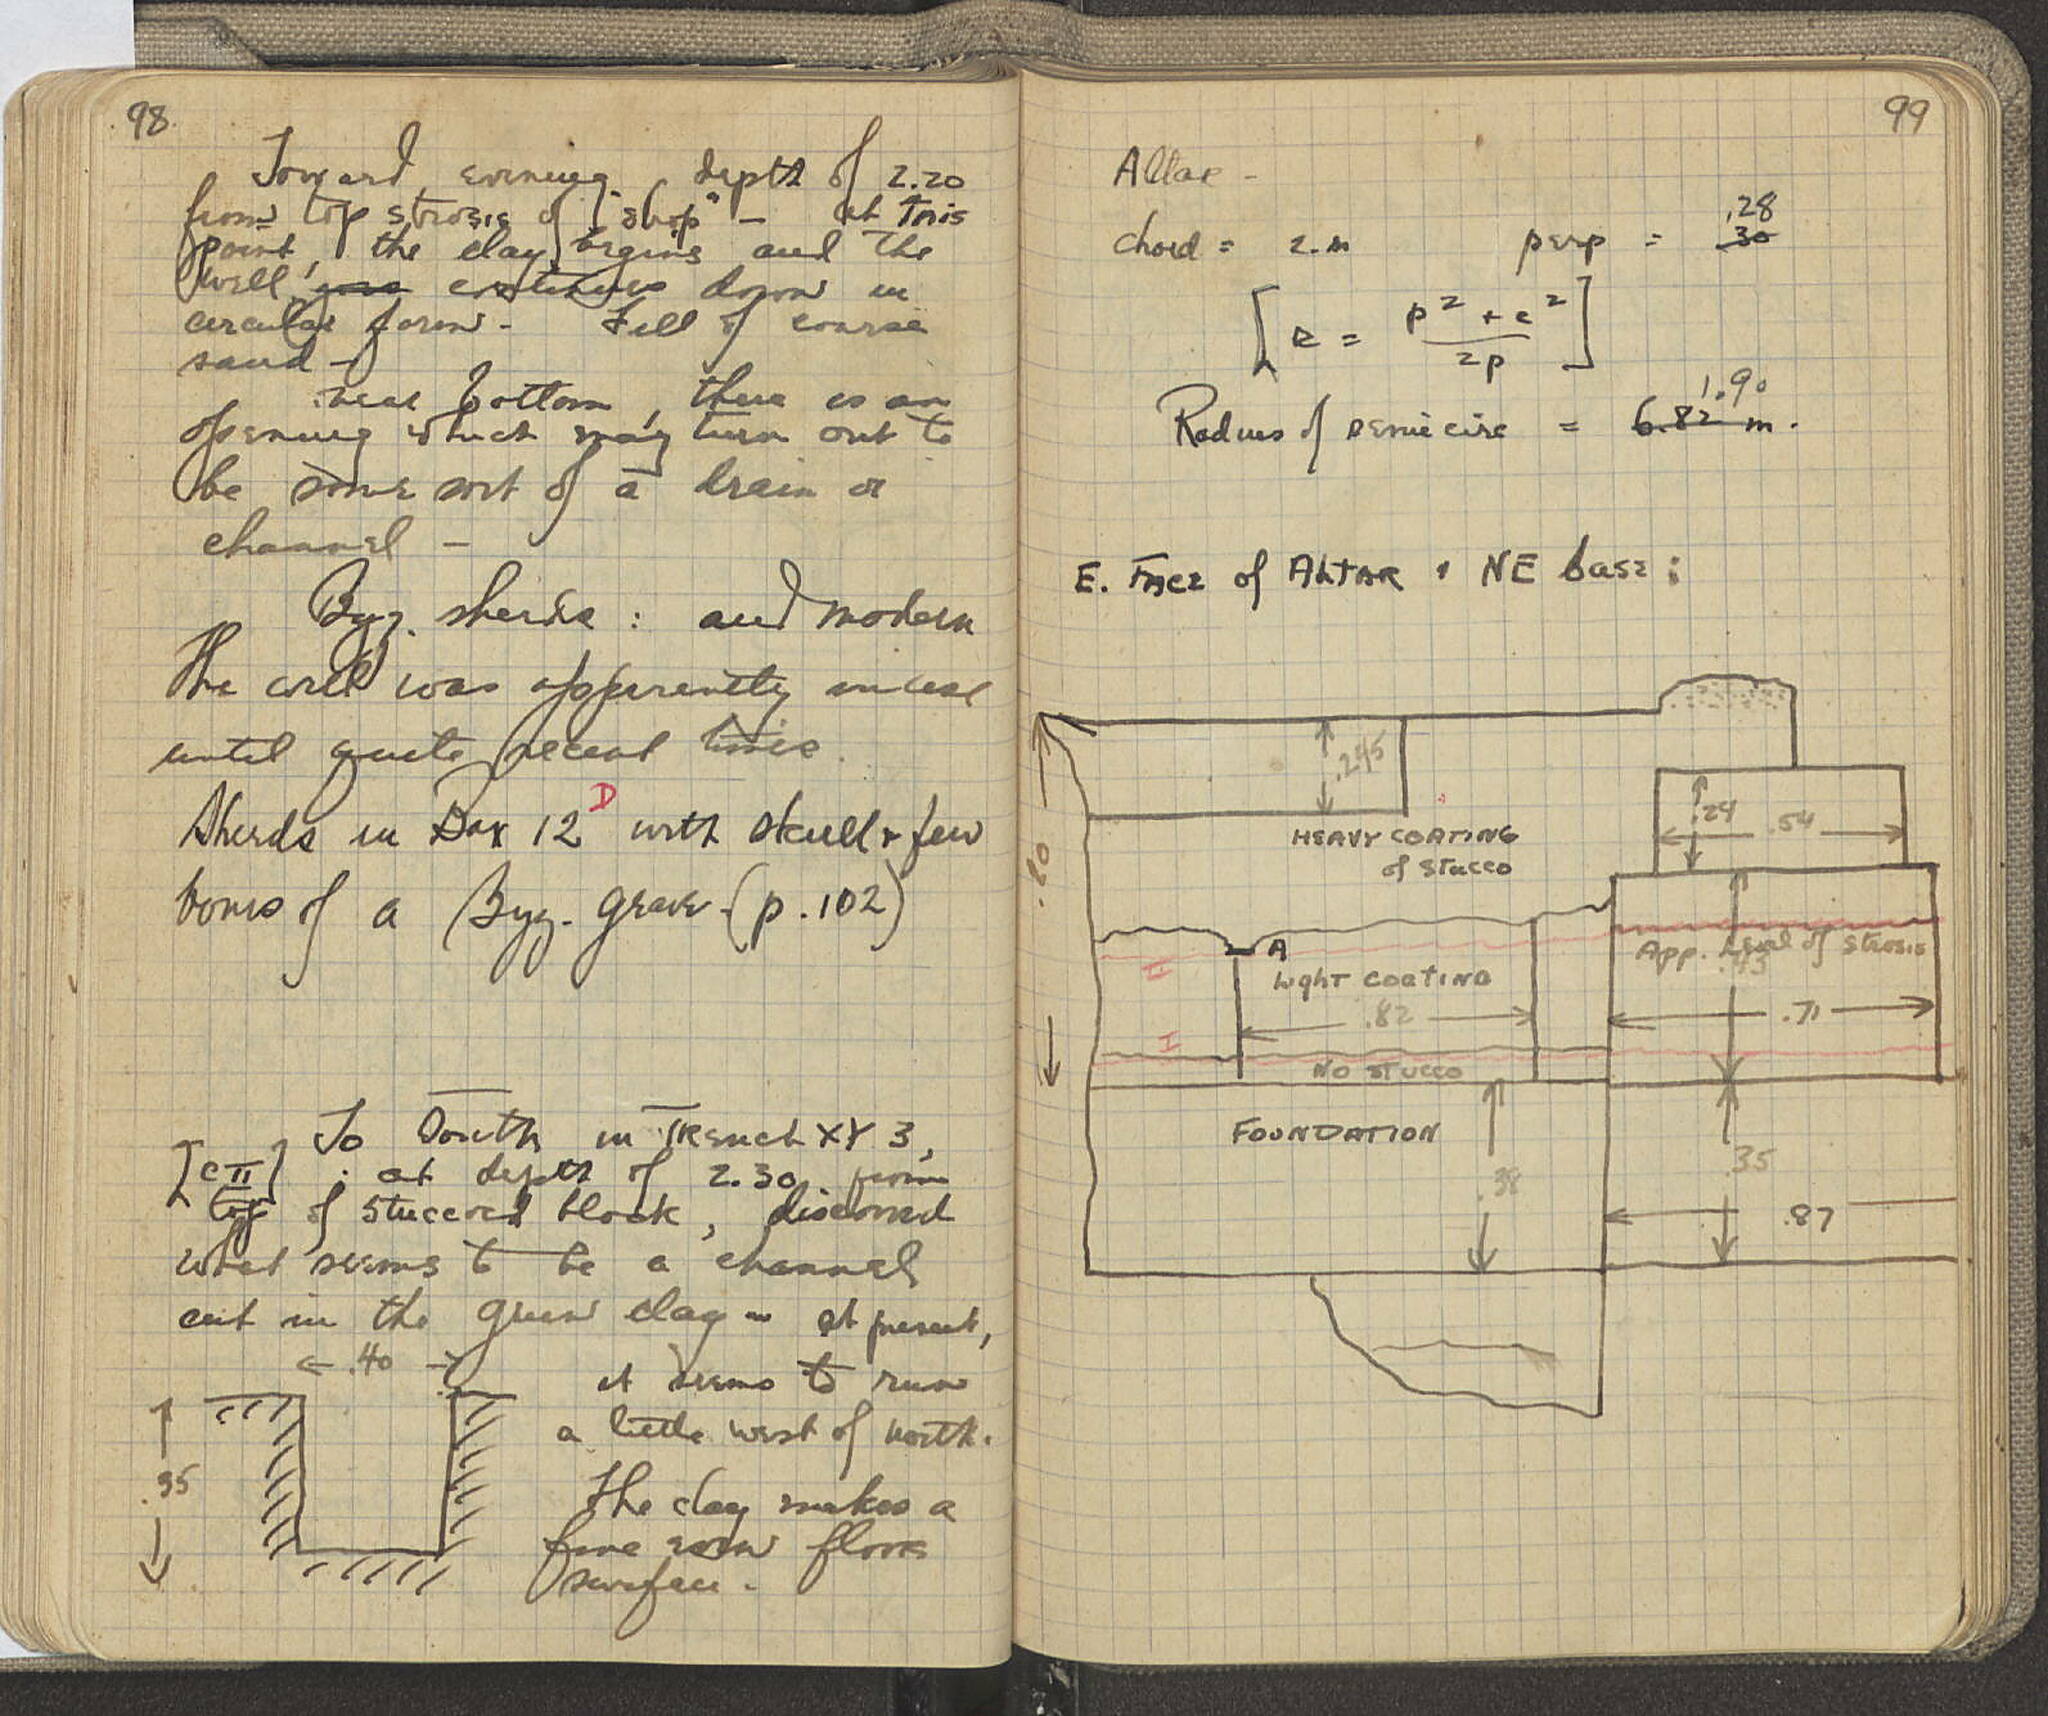 98
Toward evening depth of 2.20
from top strosis of "shop" - at this
point, the clay begins and the
well, goes continues down in
circular form - Fill of coarse
sand -
near bottom, there is an
opening which may turn out to
be some sort of a drain or
channel -
Byz. sherds : and modern
The well was apparently in use
until quite recent times.
Sherds in Box 12 D with skull + few
bones of a Byz. grave - (p. 102)
To South in Trench XY 3,
[CII] : at depth of 2.30 from
top of stuccoed block, discovered
what seems to be a channel
cut in the green clay - at present,
← .40 →
it seems to run
a little west of north.
.35
The clay makes a
fine even floor
surface.
99
Altar -
.28
Chord = 2.m perp = 30
[R = p² + c² / 2p]
1.90
Radius of semicirc = 6.82 m.
E. Face of Altar + NE base:
.245
.24 .54
HEAVY COATING
of Stucco
.80
A
App. level of Strosis
II
Light COATING
.82
.71
I
NO STUCCO
FOUNDATION
.38
.35
.87